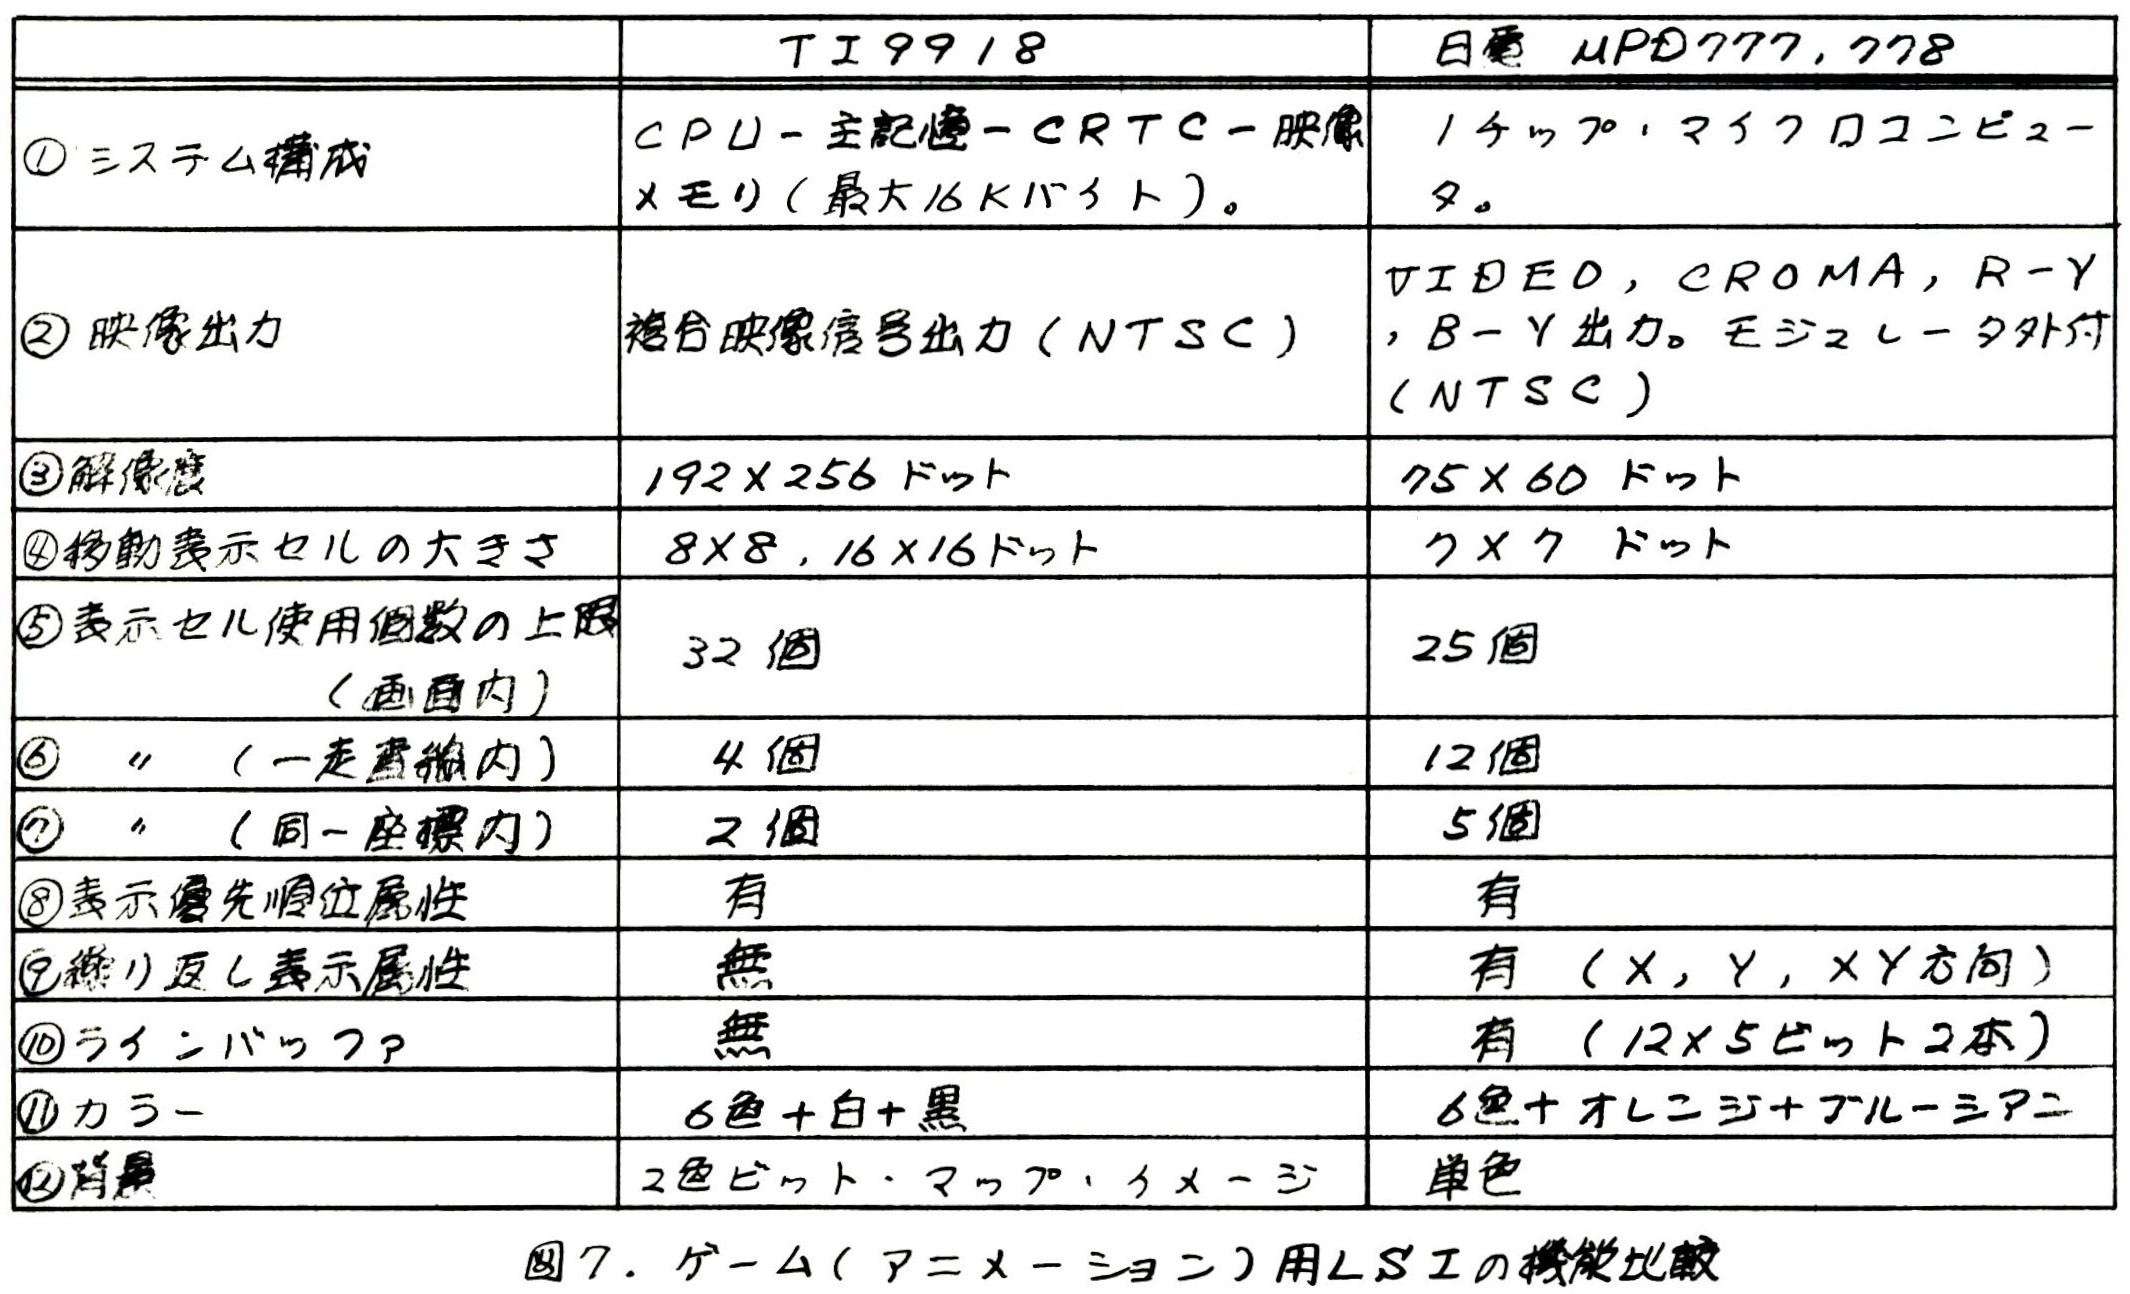 TI9918
日電 μPD777,778
①システム構成
CPU-主記憶-CRTC-映像
メモリ(最大16Kバイト)。
1チップ・マイクロコンピュー
タ。
②映像出力
複合映像信号出力(NTSC)
VIDEO, CROMA, R-Y
, B-Y出力。モジュレータ外付
(NTSC)
③解像度
192×256ドット
75×60 ドット
④移動表示セルの大きさ
8×8, 16×16ドット
7×7 ドット
⑤表示セル使用個数の上限
(画面内)
32個
25個
⑥ 〃 (一走査線内)
4個
12個
⑦ 〃 (同一座標内)
2個
5個
⑧表示優先順位属性
有
有
⑨繰り返し表示属性
無
有 (X, Y, XY方向)
⑩ラインバッファ
無
有 (12×5ビット2本)
⑪カラー
6色+白+黒
6色+オレンジ+ブルーシアン
⑫背景
2色ビット・マップ・イメージ
単色
図7. ゲーム(アニメーション)用LSIの機能比較